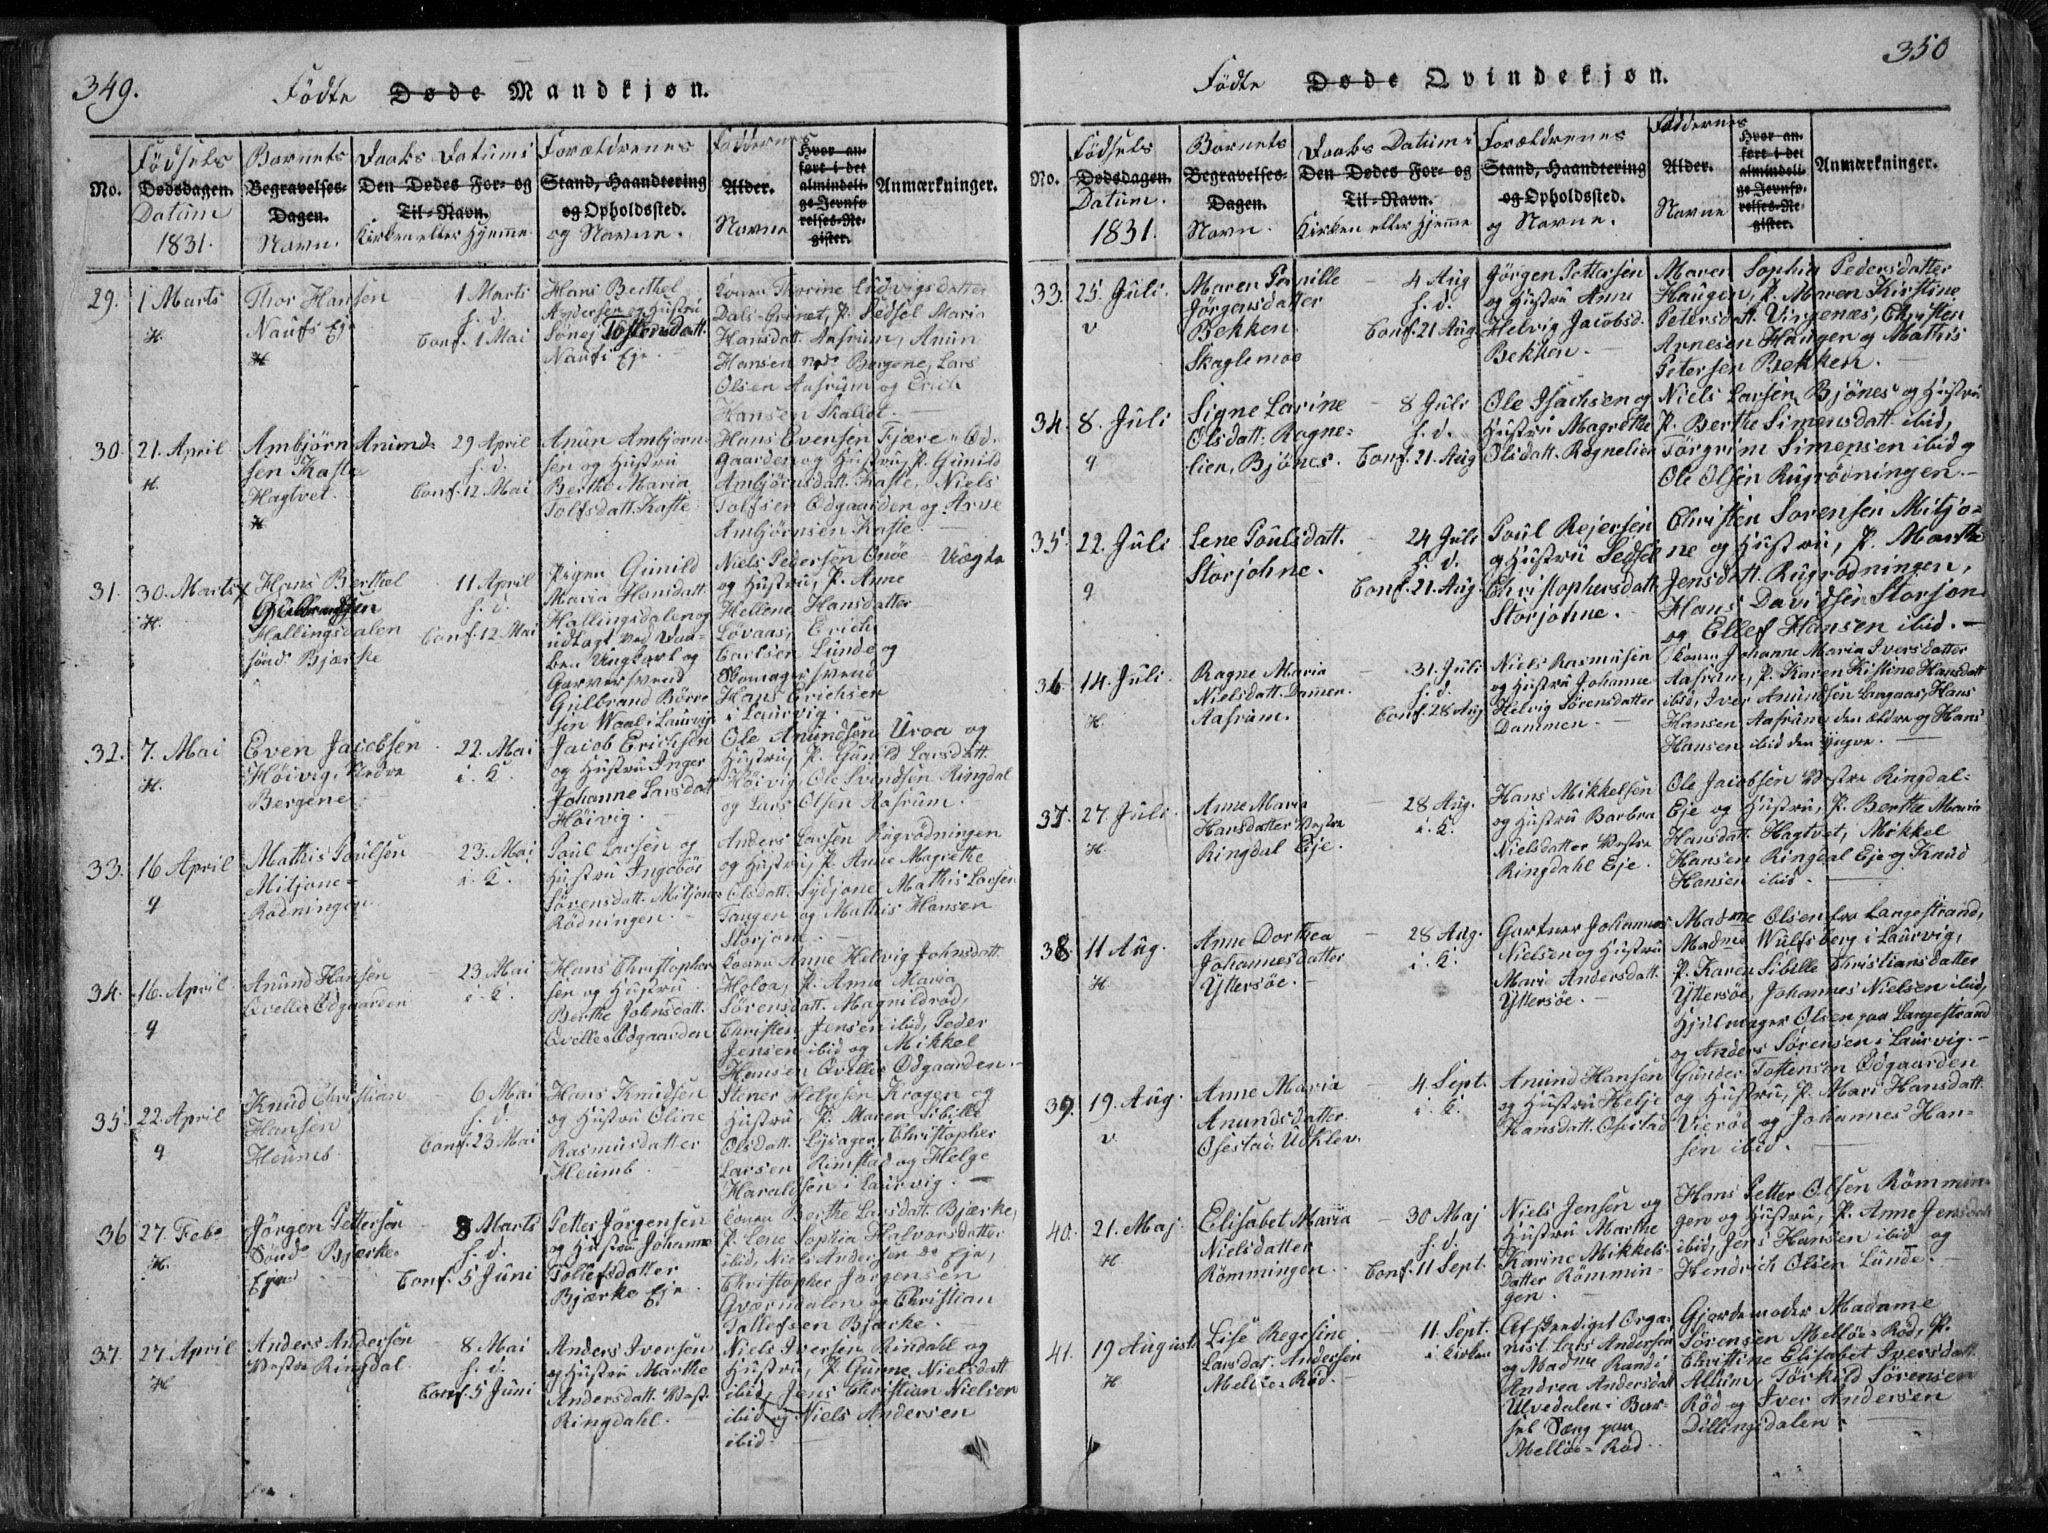 349.
Födte Døde Mandkjøn.
No.
Födsels
Dødsdagen.
Datum
1831.
Barnets
Begravelses-
Dagen.
Navn.
Daabs Datum i
Den Dødes For- og
Til-Navn.
Kirken eller Hjemme
Forældrenes
Stand, Haandtering
og Opholdssted.
og Navne.
Faddernes
Alder.
Navne
Hvor an-
ført i det
almindeli-
ge Jevnfø-
relses-Re-
gister.
Anmærkninger.
29.
1 Marts
H.
Thor Hansen
Naufs Eje
H
1 Marts
h. d.
Conf. 1 Mai
Hans Berthel
Andersen og Hustru
Tostensdatt.
Naufs Eje.
Konen Thorine Ludvigsdatter
Dals-Grnæt, P. Sedsel Maria
Hansdatt. Aasrum, Anun
Hansen Bergene, Lars
Olsen Aasrum og Erich
Hansen Skalldt.
30.
21. April
H.
Ambjørn Anund-
sen Kaste
Hagtvet.
H
29 April
h. d.
Conf. 12 Mai
Anun Ambjørn-
sen og Hustru
Berthe Maria
Tolfsdatt. Kaste
Hans Evensen Fjære Od-
gaarden og Hustru, P. Gunild
Ambjørnsdatt. Kaste, Niels
Tolfsen Odgaarden og Arve
Ambjørnsen Kaste.
31.
30. Marts
H.
Hans Berthel
Gulbrandsen
Hallingsdalen
sönd. Bjærke
11 April
h. d.
Conf. 12 Mai
Pigen Gunild
Maria Hansdatt.
Hallingsdalen og
udlagt ved Daa-
ben Ungkarl og
Garversvend
Gulbrand Börre-
sen Waal i Laurvig
Niels Pedersen Onöe
og Hustru, P. Anne
Hellene Hansdatter
Løvaas, Erich
Carlsen Lunde og
Skomagersvend
Hans Erichsen
i Laurvig.
Uægte
32.
7. Mai
H.
Even Jacobsen
Höivig, Nedre
Bergene
22. Mai
i. K.
Jacob Erichsen
og Hustru Inger
Johanne Larsdat
Höivig.
Ole Anundsen Uroa og
Hustru, P. Gunild Larsdatt.
Höivig, Ole Svendsen Ringdal
og Lars Olsen Aasrum.
33.
16 April
q
Mathis Poulsen
Mitjane-
Rödningen
23. Mai
i. K.
Poul Larsen og
Hustru Ingebör
Sörensdatt. Mitjone
Rödningen.
Anders Larsen Rugrödningen
og Hustru, P. Anne Magrethe
Olsdatt. Sydjone, Mathis Larsen
Tangen og Mathis Hansen
Storjone.
34.
16. April
q
Anund Hansen
Qvelle Odgaarden
23. Mai
i. K.
Hans Christopher-
sen og Hustru
Berthe Johnsdatt.
Qvelle Odgaarden
Konen Anne Helvig Johnsdatt.
Holoa, P. Anne Maria
Sörensdatt. Magnildröd,
Christen Jensen ibid, Peder
Jensen ibid og Mikkel
Hansen Qvelle Odgaarden.
35.
22. April
q
Knud Christian
Hansen
Heumb.
6 Mai
h. d.
Conf. 23 Mai
Hans Knudsen
og Hustru Oline
Rasmusdatter
Heumb.
Stener Helgesen Kragen og
Hustru, P. Maren Sibille
Olsdatt. Lysager, Christopher
Larsen Rimstad og Helge
Haraldsen i Laurvig.
36
27. Feb.
H.
Jörgen Pettersen
Söndr Bjærke
Eje
8 Marts
h. d.
Conf. 5 Juni
Petter Jörgensen
og Hustru Johanne
Tollefsdatter
Bjærke Eje.
Konen Berthe Larsdatt. Bjærke,
P. Lene Sophia Halvorsdatter
ibid, Niels Andersen do Eje,
Christopher Jörgensen
Gværndalen og Christian
Tollefsen Bjærke.
37.
27 April
H
Anders Andersen
Vestre Ringdal.
8 Mai
h. d.
Conf. 5 Juni
Anders Iversen
og Hustru Marthe
Andersdatt. Vest
Ringdahl.
Niels Iversen Rindahl og
Hustru, P. Gunne Nielsdatt
ibid, Jens Christian Nielsen
ibid og Niels Andersen
ibid.
350
Födte Døde Qvindekjøn.
No.
Födsels
Dødsdagen.
Datum.
1831.
Barnets
Begravelses-
Dagen.
Navn.
Daabs Datum i
Den Dødes For- og
Til-Navn.
Kirken eller Hjemme
Forældrenes
Stand, Haandtering
og Opholdssted.
og Navne.
Faddernes
Alder.
Navne
Hvor an-
ført i det
almindeli-
ge Jevnfø-
relses-Re-
gister.
Anmærkninger.
33.
25. Juli.
v
Maren Pernille
Jörgensdatter
Bekken
Skaglemoe
4 Aug
h. d.
Conf. 21 Aug
Jörgen Pettersen
og Hustru Anne
Helvig Jacobsd.
Bekken.
Maren Sophia Pedersdatter
Haugen, P. Maren Kirstine
Petersdatt. Virgenæs, Christen
Arnesen Haugen og Mathis
Petersen Bekken.
34.
8. Juli
q
Signe Larine
Olsdatt. Ragne-
lien, Bjönes.
8 Juli
h. d.
Conf. 21 Aug
Ole Isachsen og
Hustru Magrethe
Olsdatt. Ragnelien
Niels Larsen Bjönes og Hustru
P. Berthe Simensdatt. ibid,
Törgrim Simensen ibid og
Ole Olsen Rugrödningen.
35.
22. Juli
q
Lene Poulsdatt.
Storjohne.
24 Juli
h. d.
Conf. 21 Aug.
Poul Rejersen
og Hustru Sedsel
Christophersdatt.
Storjohne.
Christen Sorensen Mitjo-
ne og Hustru, P. Marthe
Jensdatt. Rugrodningen,
Hans Davidsen Storjon
og Ellef Hansen ibid.
36.
14. Juli
H.
Ragne Maria
Nielsdatt. Dammen.
Aasrum.
31. Juli
h. d.
Conf. 28 Aug
Niels Rasmusen
og Hustru Johanne
Helvig Sörensdatter
Dammen.
Konen Johanne Maria Iversdatter
Aasrum, P. Karen Kistine Hansdatt
ibid, Iver Anundsen Langaas, Hans
Hansen Aasrum den ældre og Hans
Hansen ibid den yngre.
37.
27 Juli.
H.
Anne Maria
Hansdatter Vestre
Ringdal Eje.
28 Aug.
i. K.
Hans Mikkelsen
og Hustru Barbra
Nielsdatter Vestre
Ringdahl Eje.
Ole Jacobsen Vestre Ringdal-
Eje og Hustru, P. Berthe Maria
Hansdatt. Hagtvet, Mikkel
Hansen Ringdal Eje og Knud
Hansen ibid.
38.
11 Aug.
H.
Anne Dorthea
Johannesdatter
Yttersöe.
28 Aug.
i. K.
Gartner Johannes
Nielsen og Hustru
Mari Andersdatt.
Yttersöe.
Madme Olsen fra Langestrand,
Madme Wulfsberg i Laurvig,
P. Karen Sibille Christiansdatter
Yttersöe, Johannes Nielsen ibid,
Hjulmager Olsen paa Langestrand
og Anders Sörensen i Laurvig.
39.
19. Aug.
v
Anne Maria
Anundsdatter
Osestad Udklev.
4 Sept.
i. K.
Anund Hansen
og Hustru Helje
Hansdatt. Osestad
Gunder Tostensen Odgaarden
og Hustru, P. Mari Hansdatt.
Vieröd og Johannes Han-
sen ibid.
40.
21. Maj.
H
Elisabet Maria
Nielsdatter
Römmingen.
30 Maj
h. d.
Conf. 11 Sept.
Niels Jensen og
Hustru Marthe
Karine Mikkels-
datter Römmin-
gen.
Hans Petter Olsen Römmin-
gen og Hustru, P. Anne Jensdatt
ibid, Jens Hansen ibid og
Hendrich Olsen Lunde.
41.
19 August
H
Lise Regesine
Larsdat. Andersen
Mellöe-Röd.
11. Sept.
i Kirken
Afskediget Orga-
nist Lars Andersen
og Madme Randi
Andrea Andersdatt
Ulvedalen i Bar-
sel Sæng paa
Mellöe-Röd.
Gjordemoder Madame
Sörensen Mellöe-Röd, P.
Christine Elisabet Iversdatt.
Allum, Törkild Sörensen
Röd og Iver Andersen
Dillingsdalen.